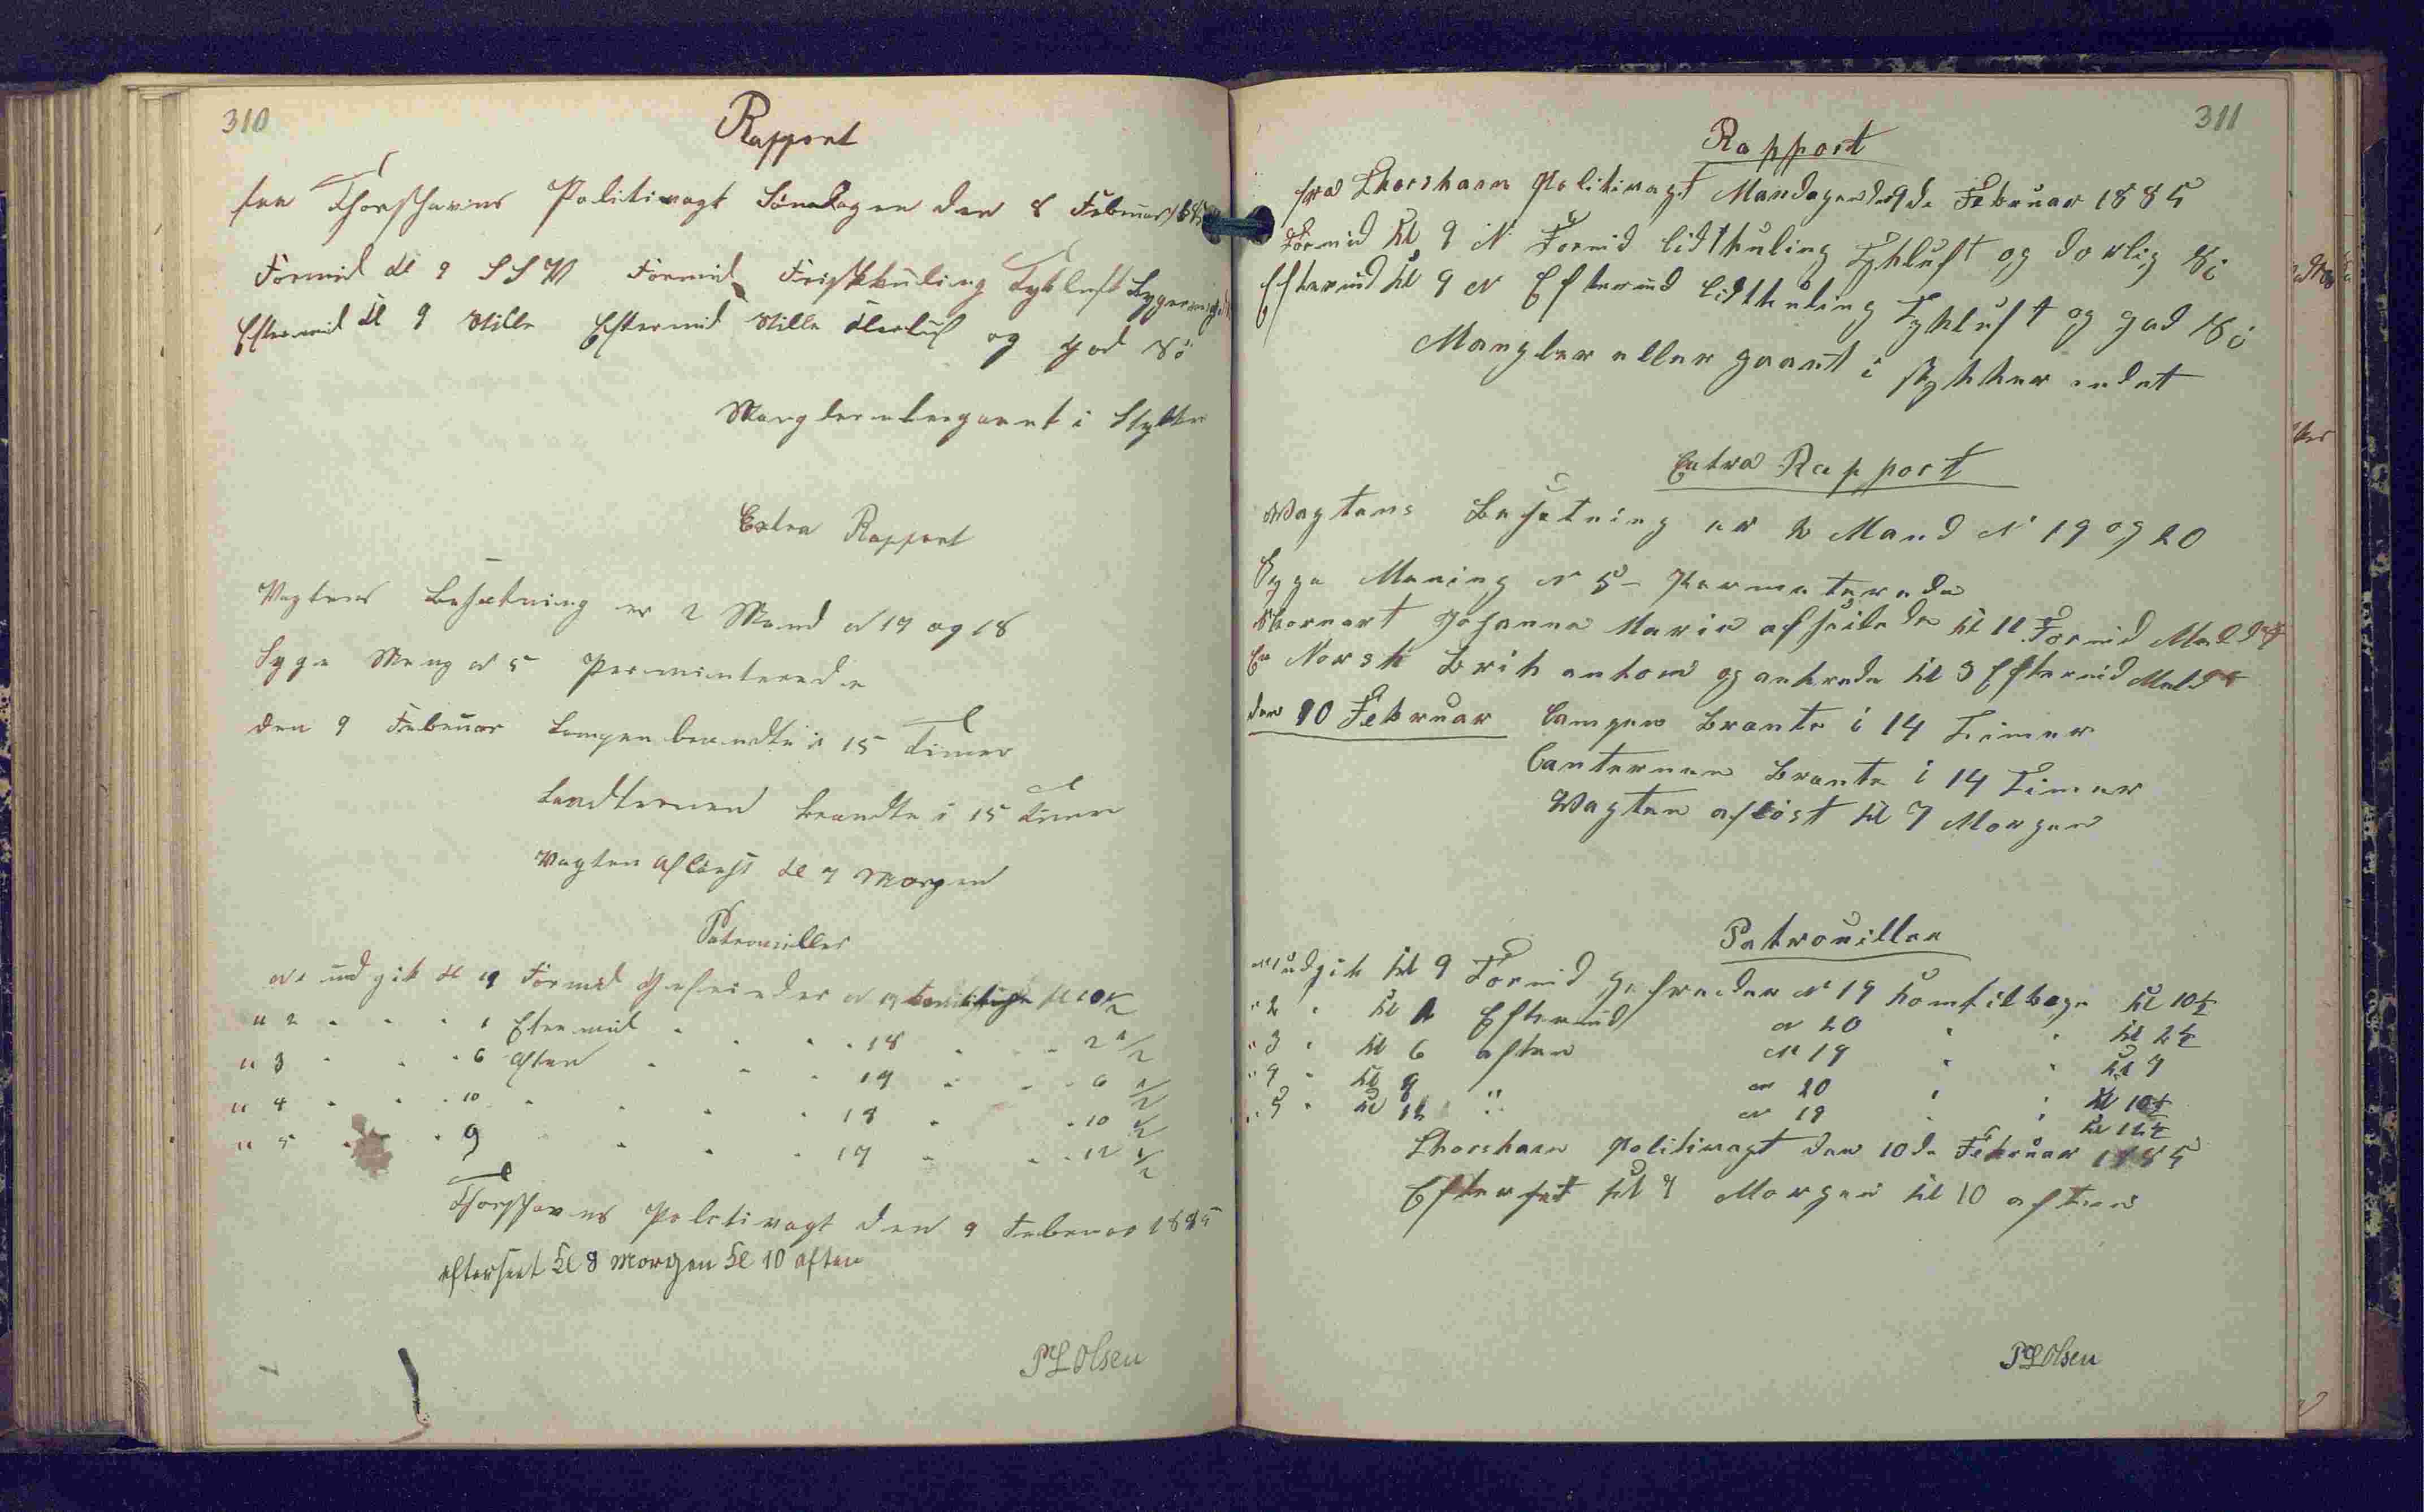 310
Rapport
fra Thorshavns Politivagt Söndagen den 8 Februar 1885
Formid Kl 9 S S W Formid Friskkuling Tykluft
Eftermid Kl 9 Stille Eftermid Stille Klarluft og god Sö
Mangler eller gaaet i Stykker
Extra Rapport
Vagtens Besætning er 2 Mand N 17 og 18
Syge Meng N 5 Perminterede
den 9 Februar Lampen brændte i 15 Timer
Landternen brændte i 15 Timer
Vagten Aflöst Kl 7 Morgen
Patrouiller
N 1 udgik Kl 9 Formid Gefreider N 17 Kl 10 1/2
" 2 " " " 1 Eftermid " " " 18 " " 2 1/2
" 3 " " " 6 Aften " " " 17 " " 6 1/2
" 4 " " " 10 " " " " 18 " " 10 1/2
" 5 " " 9 " " " 17 " " 12 1/2
Thorshavns Politivagt den 9 Februar 1885
efterseet Kl 8 Morgen Kl 10 aften
P L Olsen
311
Rapport
fra Thorshavn Politivagt Mandagen d 9de Februar 1885
Formid Kl 9 N Formid lidtkuling Tykluft og darlig Sö
Eftermid Kl 9 N Eftermid lidtkuling Tykluft og god Sö
Mangler eller gaaet i stykker indet
Extra Rapport
Wagtens Besetning er 2 Mand N 19 og 20
Syge Mening N 5 Permeterede
Skonnart Johanna Marie afseilede Kl 11 Formid Meldt
En Norsk Brik ankom og ankrede Kl 3 Eftermid Meldt
den 10 Februar Lampen Brante i 14 Timer
Lanternen Brante i 14 Timer
Wagten aflöst Kl 7 Morgen
Patrouiller
N 1 udgik Kl 9 Formid Gefreider N 19 komtilbage Kl 10 1/2
" 2 " Kl 1 Eftermid N 20 " " Kl 2 1/2
" 3 " Kl 6 aften N 19 " " Kl 7
" 4 " Kl 9 " N 20 " " Kl 10 1/2
" 5 " Kl 12 " N 19 " " Kl 12 1/2
Thorshavn Politivagt den 10de Februar 1885
Efterset Kl 9 Morgen Kl 10 aften
P L Olsen